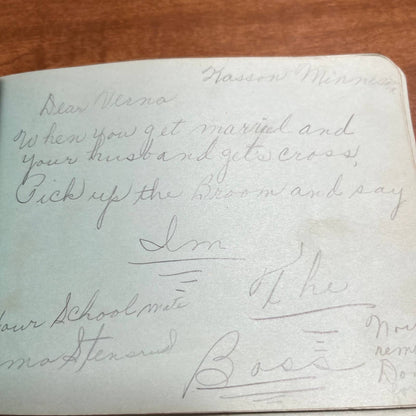 Kasson Minnesota
Dear Verna
When you get married and
your husband gets cross,
Pick up the Broom and say
Im
The
Boss
Your School mate
Stensrud